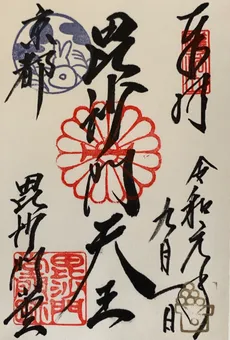 奉拝
令和元年
九月一日
毘沙門天王
京都
毘沙門堂
毘沙門